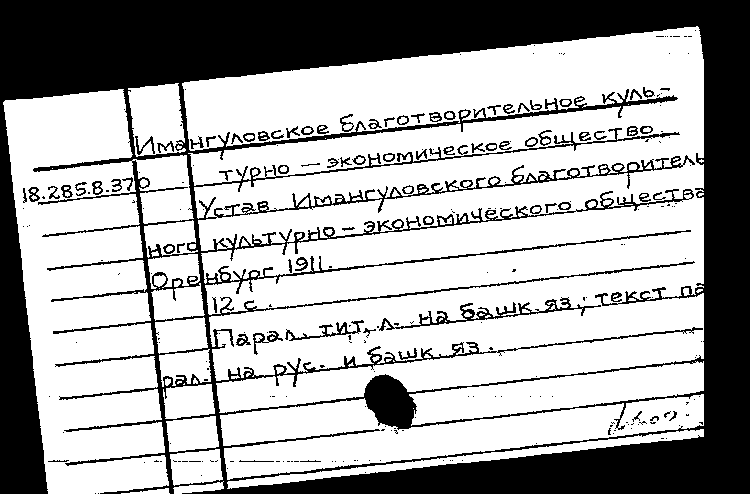 Имангуловское благотворительное куль-
18.285.8.370 турно — экономическое общество.
Устав Имангуловского благотворитель
ного культурно — экономического общества
Оренбург, 1911.
12 с.
Парал. тит. л. на башк. яз.; текст па
рал. на рус. и башк. яз.